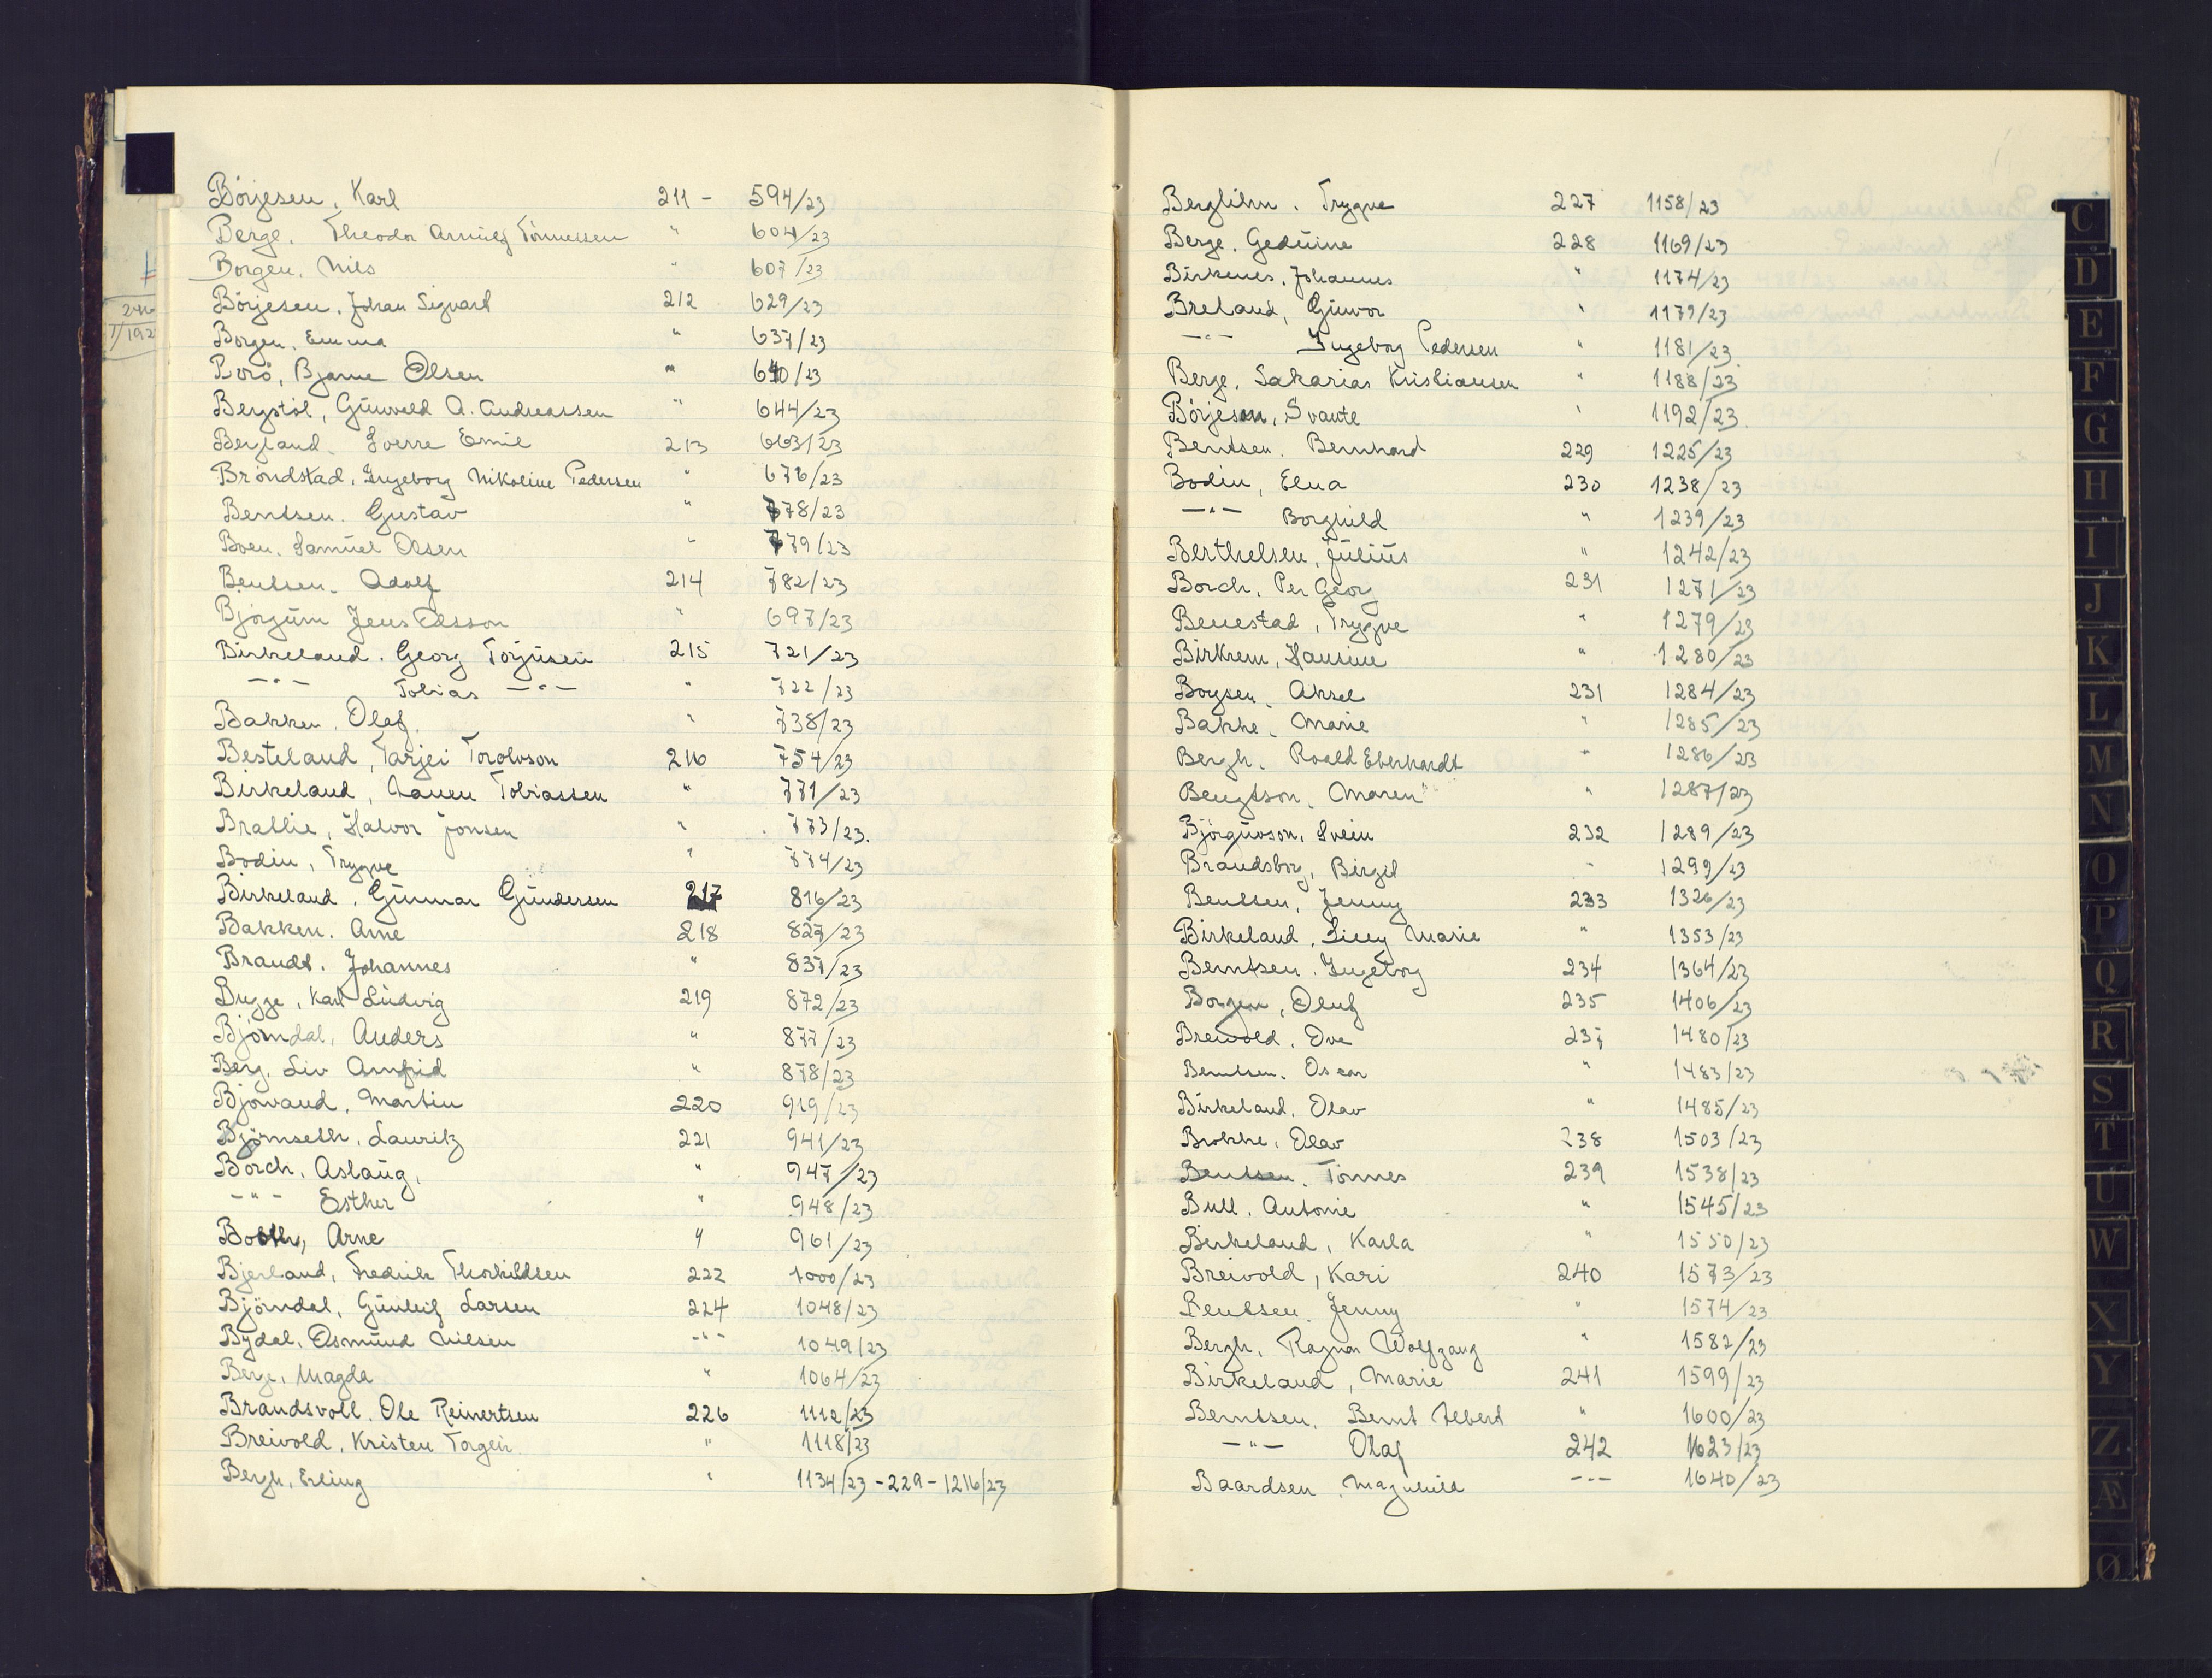 Börjesen, Karl 211 - 594/23
Berge, Theodor Arnulf Tönnessen " 604/23
Borgen, Nils " 607/23
Börjesen, Johan Sigvart 212 629/23
Borgen, Emma " 637/23
Borö, Bjarne Olsen " 640/23
Bergstöl, Gunvald A. Andreassen " 644/23
Bergland, Sverre Emil 213 663/23
Bröndstad, Ingeborg Nikoline Pedersen " 676/23
Bentsen, Gustav " 778/23
Boen, Samuel Olsen " 779/23
Bentsen, Adolf 214 782/23
Björgum Jens Olsson " 697/23
Birkeland, Georg Torjusen 215 721/23
—"— Tobias —"— " 722/23
Bakken, Olaf " 738/23
Besteland, Tarjei Torolvson 216 754/23
Birkeland, Lauen Tobiassen " 771/23
Brattlie, Halvor Jonsen " 773/23.
Bodin, Trygve " 774/23
Birkeland, Gunnar Gundersen 217 816/23
Bakken, Arne 218 827/23
Brandt, Johannes " 837/23
Bugge, Karl Ludvig 219 872/23
Björndal, Anders " 877/23
Berg, Liv Arnfrid " 878/23
Bjorvand, Martin 220 919/23
Björnseth, Lauritz 221 941/23
Borch, Aslaug, " 947/23
-"- Esther " 948/23
Booth, Arne " 961/23
Bjelland, Fredrik Thorkildsen 222 1000/23
Björndal, Gunleif Larsen 224 1048/23
Bydal, Osmund Nilsen -"- 1049/23
Berge, Magda " 1064/23
Brandsvoll, Ole Reinertsen 226 1112/23
Breivold, Kristen Torgeir " 1118/23
Bergh, Erling " 1134/23 - 229 - 1216/23
Berglihn, Trygve 227 1158/23
Berge, Geduine 228 1169/23
Birkenes, Johannes " 1174/23
Breland, Gunvor " 1179/23
—"— Ingeborg Pedersen " 1181/23
Berge, Sakarias Kristiansen " 1188/23
Börjeson, Svante " 1192/23.
Bentsen, Bernhard 229 1225/23
Bodin, Elna 230 1238/23
—"— Borghild " 1239/23
Berthelsen, Julius " 1242/23
Borch, Per Georg 231 1271/23
Benestad, Trygve " 1279/23
Birkrem, Hansine " 1280/23
Boysen, Aksel 231 1284/23
Bakke, Marie " 1285/23
Bergh, Roald Eberhardt " 1286/23
Bengtson, Maren " 1287/23
Björguvson, Svein 232 1289/23
Brandsborg, Birgit " 1299/23
Bentsen, Jenny 233 1326/23
Birkeland, Lilly Marie " 1353/23
Berntsen, Ingeborg 234 1364/23
Borgen, Oluf 235 1406/23
Breivold, Ove 237 1480/23
Berntsen, Oscar " 1483/23
Birkeland, Olav " 1485/23
Brokke, Olav 238 1503/23
Bentsen, Tönnes 239 1538/23
Bull, Antonie " 1545/23
Birkeland, Karla " 1550/23
Breivold, Kari 240 1573/23
Bentsen, Jenny " 1574/23
Bergh, Ragnar Wolfgang " 1582/23
Birkeland, Marie 241 1599/23
Berntsen, Bernt Albert " 1600/23
—"— Olaf 242 1623/23
Baardsen, Magnhild -"- 1640/23
C
D
E
F
G
H
I
J
K
L
M
N
O
P
Q
R
S
T
U
W
X
Y
Z
Æ
Ø